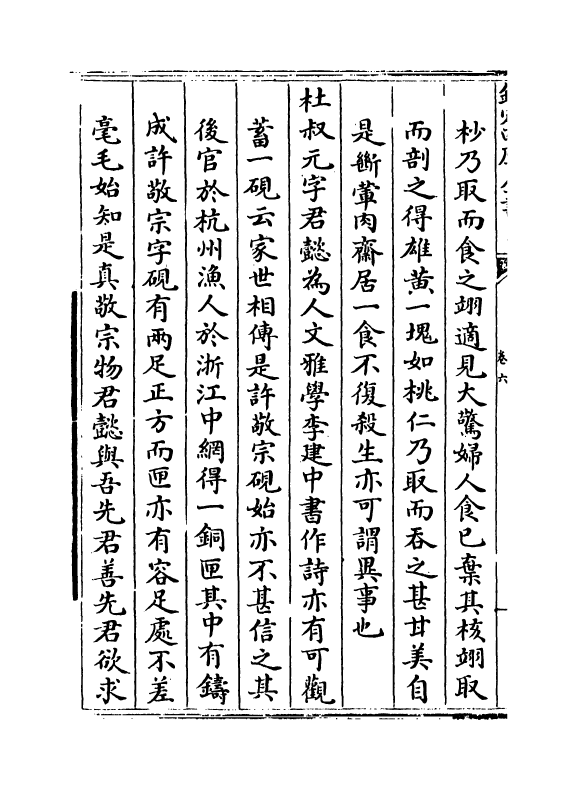 卷六
杪乃取而食之翊適見大驚婦人食已棄其核翊取
而剖之得雄黃一塊如桃仁乃取而吞之甚甘美自
是斷葷肉齋居一食不復殺生亦可謂異事也
杜叔元字君懿為人文雅學李建中書作詩亦有可觀
蓄一硯云家世相傳是許敬宗硯始亦不甚信之其
後官於杭州漁人於浙江中網得一銅匣其中有鑄
成許敬宗字硯有兩足正方而匣亦有容足處不差
毫毛始知是真敬宗物君懿與吾先君善先君欲求